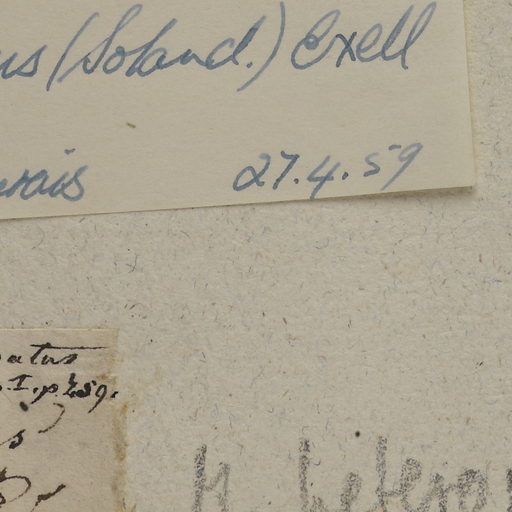 us (Soland.) Exell
vais 27.4.59
atus
. I. p. 459.
s
H. hetero